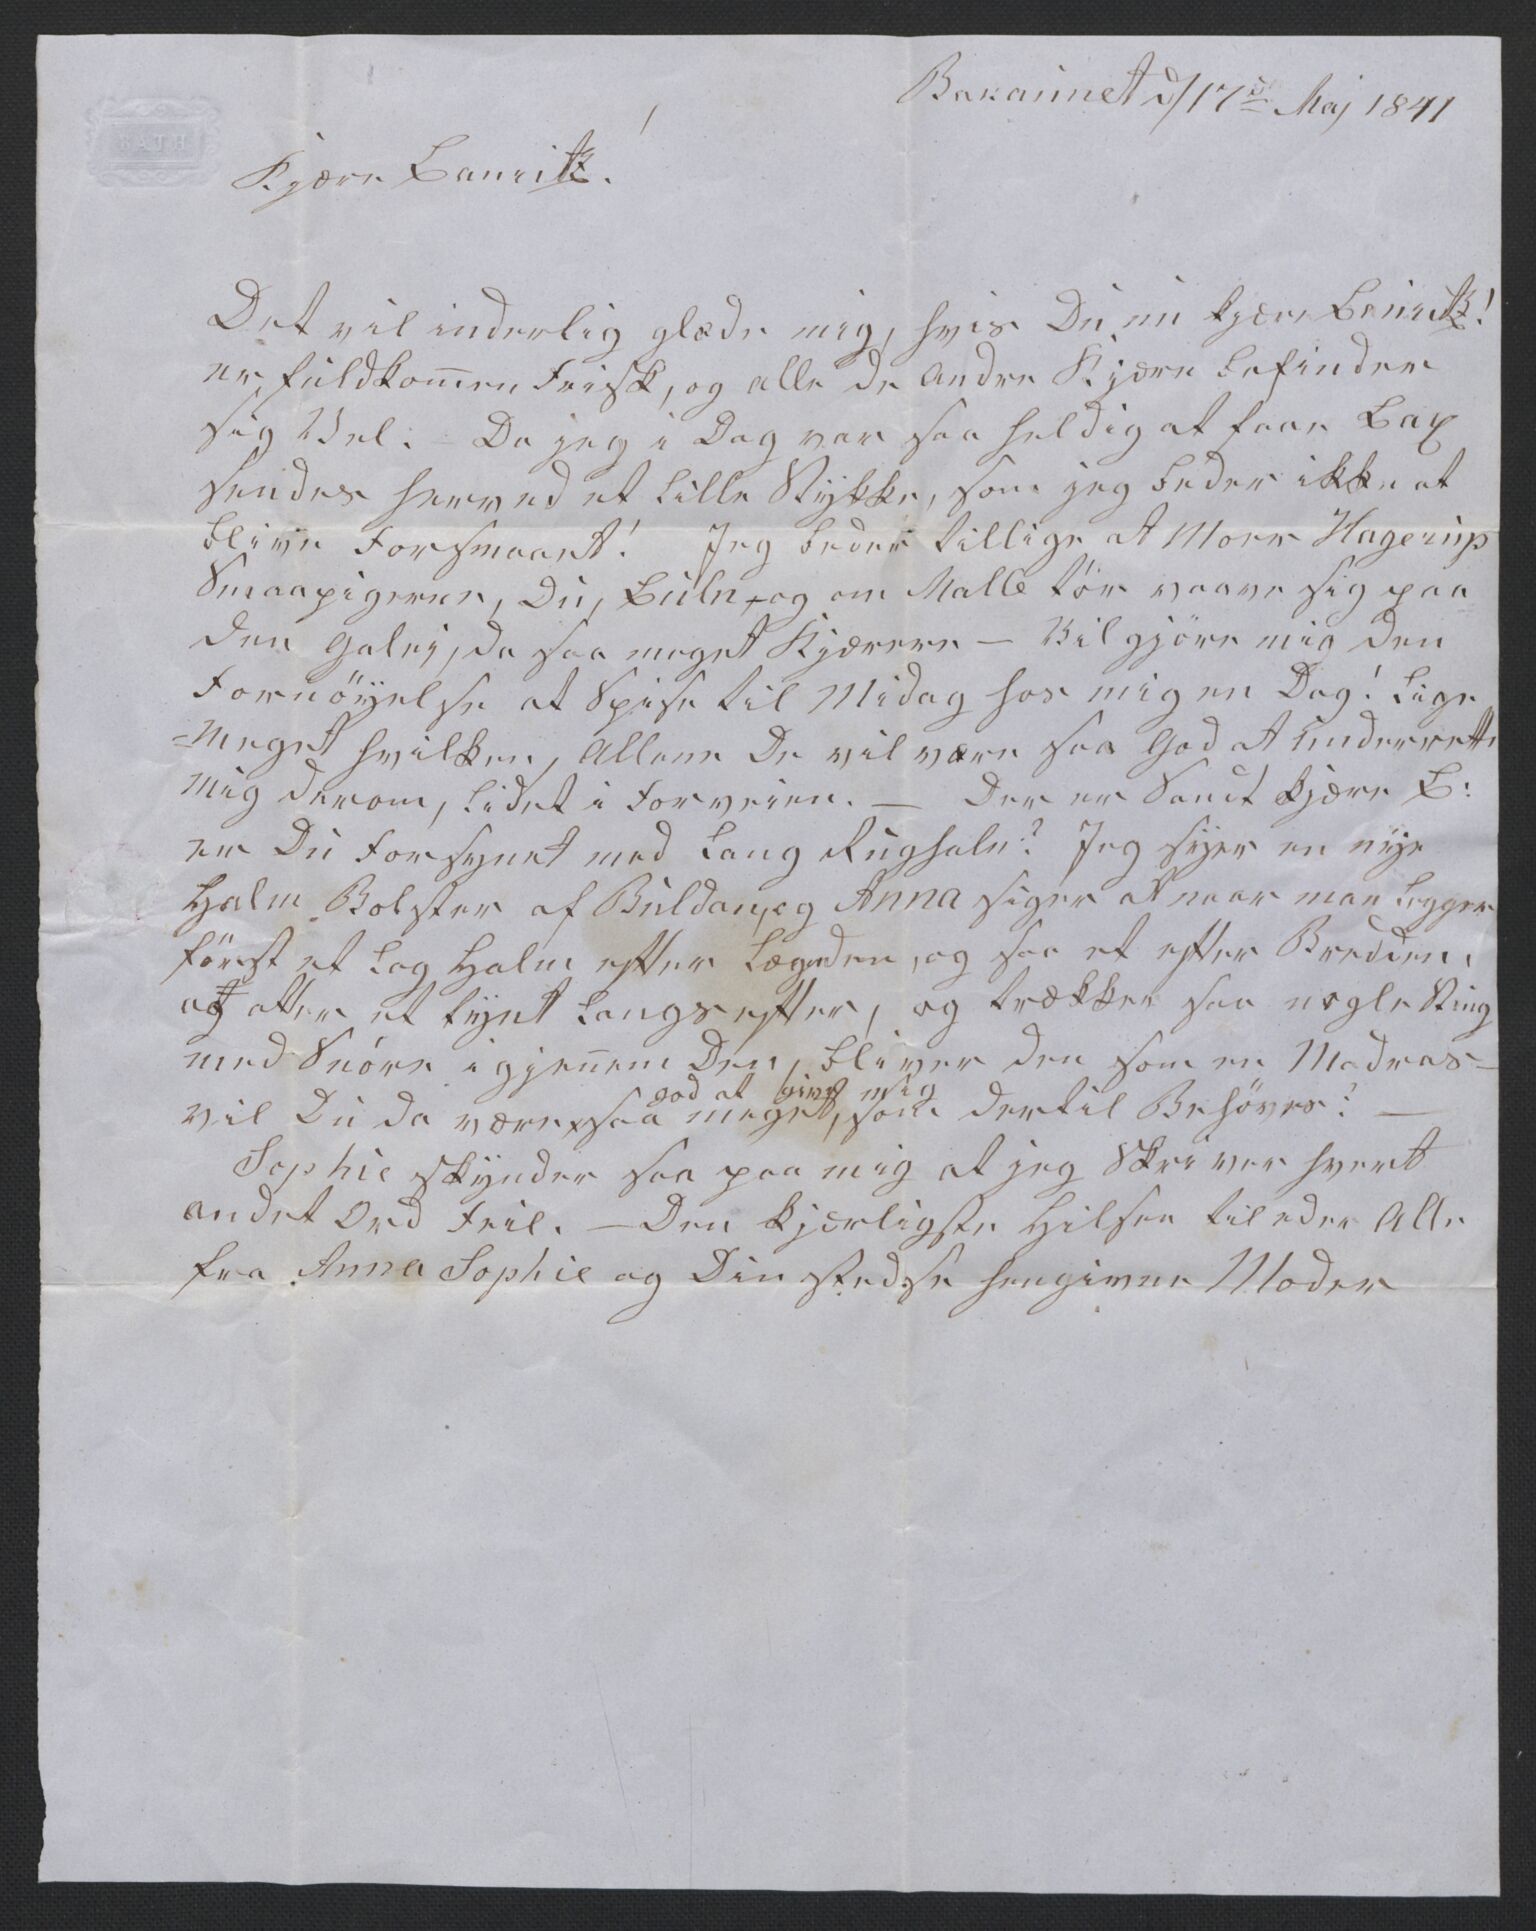 BATH
Bakaunet d/17de Maj 1841
Kjære Lauritz!
Det vil inderlig glæde mig, hvis Du nu kjære Lauritz!
er fuldkom̅en Frisk, og alle de Andre Kjære befinder
sig Vel. – Da jeg i Dag var saa heldig at faae Lax
sendes herved et lille Stykke, som jeg beder ikke at
blive Forsmaaet! Jeg beder tillige at Moer Hagerup
Smaapigerne, Du, og om Malle tør vaave sig paa
den Galej, da saa meget Kjærere – Vil gjöre mig den
Fornöyelse at Spise til Midag hos mig en Dag! lige
=meget hvilken, Allene De vil være saa God at underrette
mig derom, lidet i Forveien. – Der er Sandt kjære L:
er Du Forsynet med Lang Rughalm? Jeg syer en nye
Halm Bolster af Buldan, og Anna siger at naar man legger
först et Lag Halm efter Lægnden, og saa et efter Bredden,
og atter et tynt Langs efter, og trækker saa nogle Sting
med Snöre igjen̅em Den, bliver den som en Madras –
god at give mig
vil Du da være saa meget, som dertil Behöves? –
Sophie skynder saa paa mig at jeg Skriver hvert
andet Ord Feil. – Den kjærligste Hilsen til eder Alle
fra Anna Sophie og Din stedse hengivne Moder